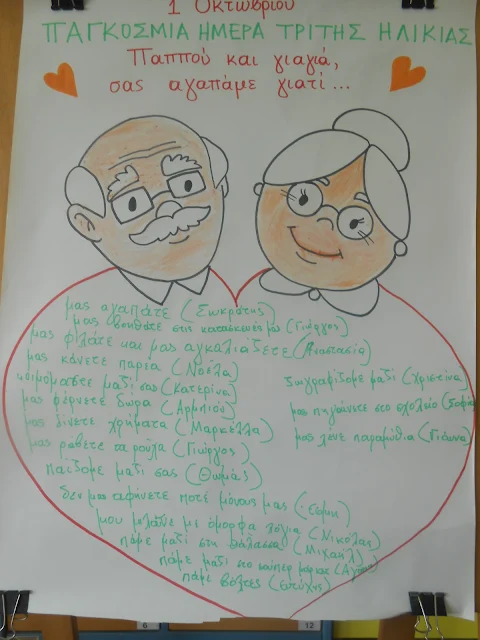 1 Οκτωβρίου
ΠΑΓΚΟΣΜΙΑ ΗΜΕΡΑ ΤΡΙΤΗΣ ΗΛΙΚΙΑΣ
Παππού και γιαγιά,
σας αγαπάμε γιατί...
μας αγαπάτε (Σωκράτης)
μας βοηθάτε στις κατασκευές μας (Γιώργος)
μας φιλάτε και μας αγκαλιάζετε (Αναστασία)
μας κάνετε παρέα (Νοέλα)
κοιμόμαστε μαζί σας (Κατερίνα)
μας φέρνετε δώρα (Αρμπιόν)
μας δίνετε χρήματα (Μαρκέλλα)
μας ράβετε τα ρούχα (Γιώργος)
παίζομε μαζί σας (Θωμάς)
ζωγραφίζομε μαζί (Χριστίνα)
μας πηγαίνετε στο σχολείο (Σοφία)
μας λένε παραμύθια (Γιάννα)
δεν μας αφήνετε ποτέ μόνους μας
μου μιλάνε με όμορφα λόγια (Νικόλας)
πάμε μαζί στη θάλασσα (Μιχαήλ)
πάμε μαζί στο σούπερ μάρκετ
πάμε βόλτες (Ευτύχης)
6
12